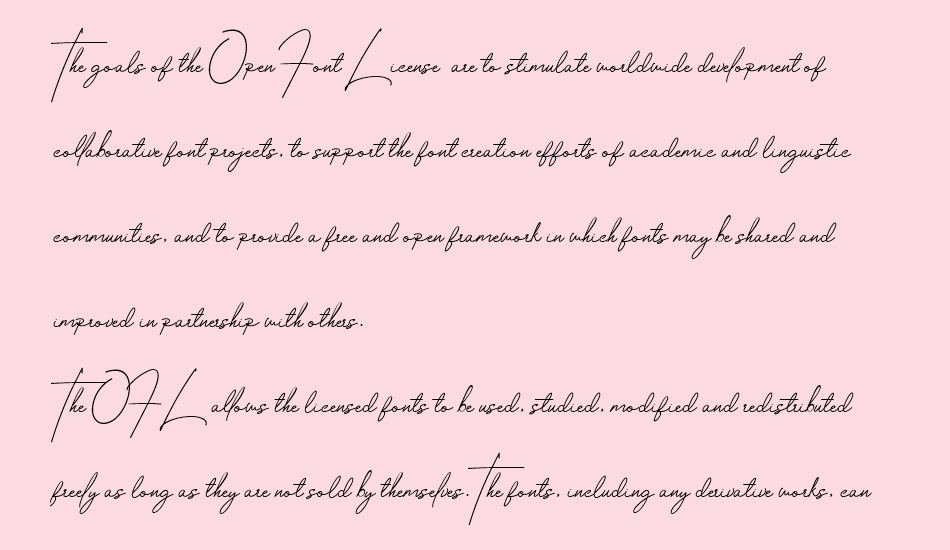 The goals of the Open Font License are to stimulate worldwide development of
collaborative font projects, to support the font creation efforts of academic and linguistic
communities, and to provide a free and open framework in which fonts may be shared and
improved in partnership with others.
The OFL allows the licensed fonts to be used, studied, modified and redistributed
freely as long as they are not sold by themselves. The fonts, including any derivative works, can